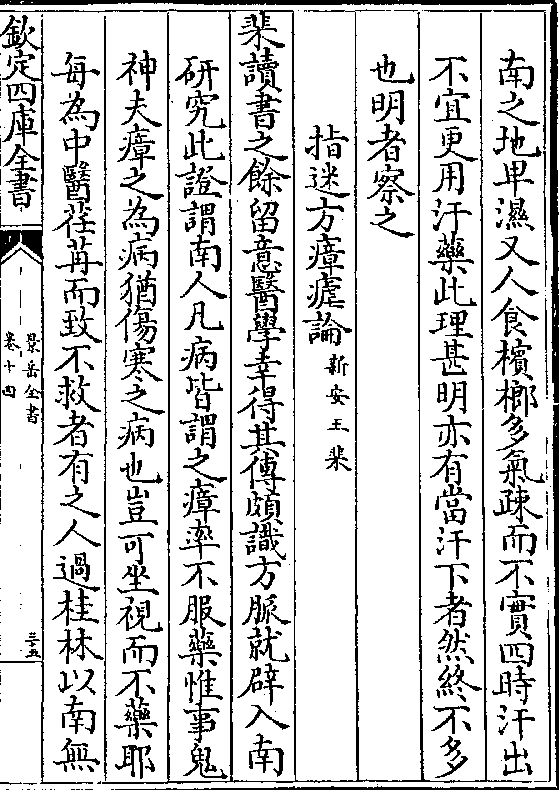 南之地卑濕又人食檳榔多氣疎而不實四時汗出
不宜更用汗藥此理甚明亦有當汗下者然終不多
也明者察之
指迷方瘴瘧論新安王棐
棐讀書之餘留意醫學幸得其傳頗識方脈就辟入南
研究此證謂南人凡病皆謂之瘴率不服藥惟事鬼
神夫瘴之為病猶傷寒之病也豈可坐視而不藥耶
每為中醫荏苒而致不救者有之人過桂林以南無
欽定四庫全書
景岳全書
卷十四
三五